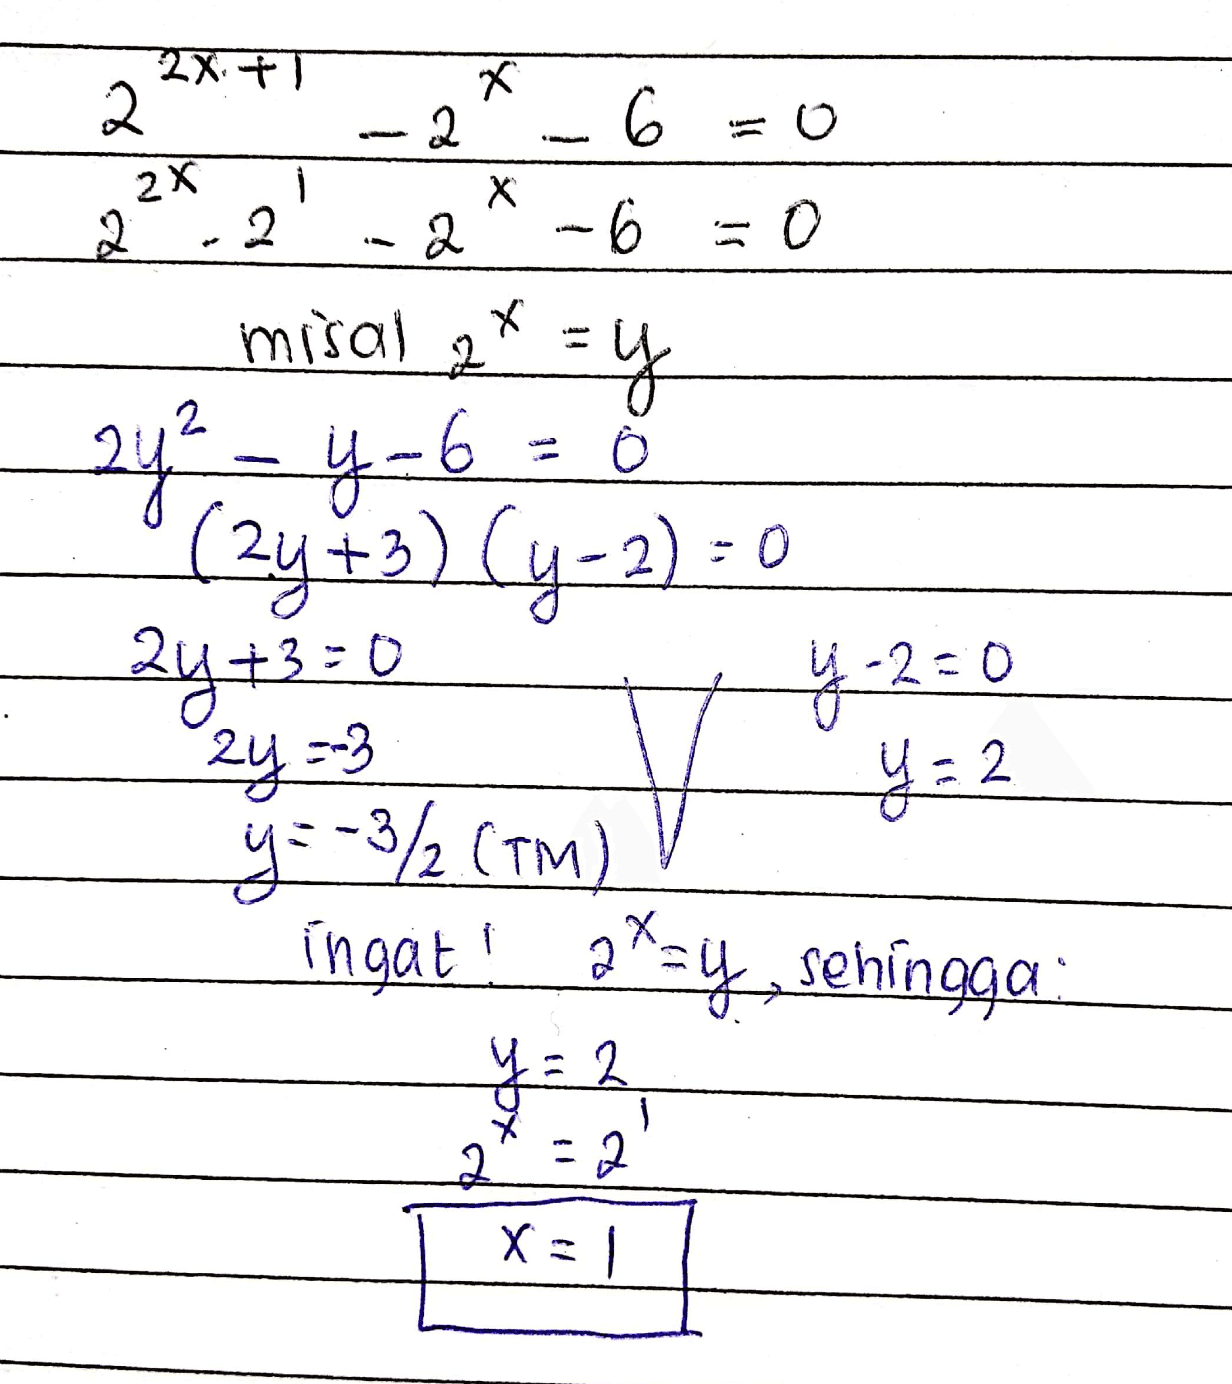 2^{2x+1} - 2^x - 6 = 0
2^{2x} . 2^1 - 2^x - 6 = 0
misal 2^x = y
2y^2 - y - 6 = 0
(2y+3) (y-2) = 0
2y+3 = 0 V y-2 = 0
2y = -3 y = 2
y = -3/2 (TM)
ingat! 2^x = y, sehingga:
y = 2
2^x = 2^1
x = 1